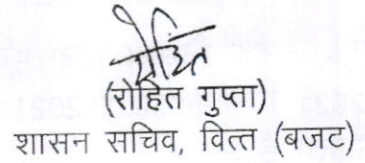 रोहित
(रोहित गुप्ता)
शासन सचिव, वित्त (बजट)